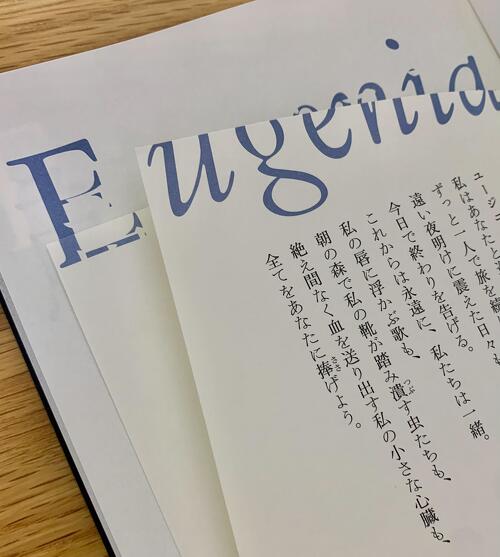 Eugenia
ユージ
私はあなたと
ずっと一人で旅を続
遠い夜明けに震えた日々も
今日で終わりを告げる。
これからは永遠に、私たちは一緒。
私の唇に浮かぶ歌も、
朝の森で私の靴が踏み潰す虫たちも、
絶え間なく血を送り出す私の小さな心臓も、
全てをあなたに捧げよう。